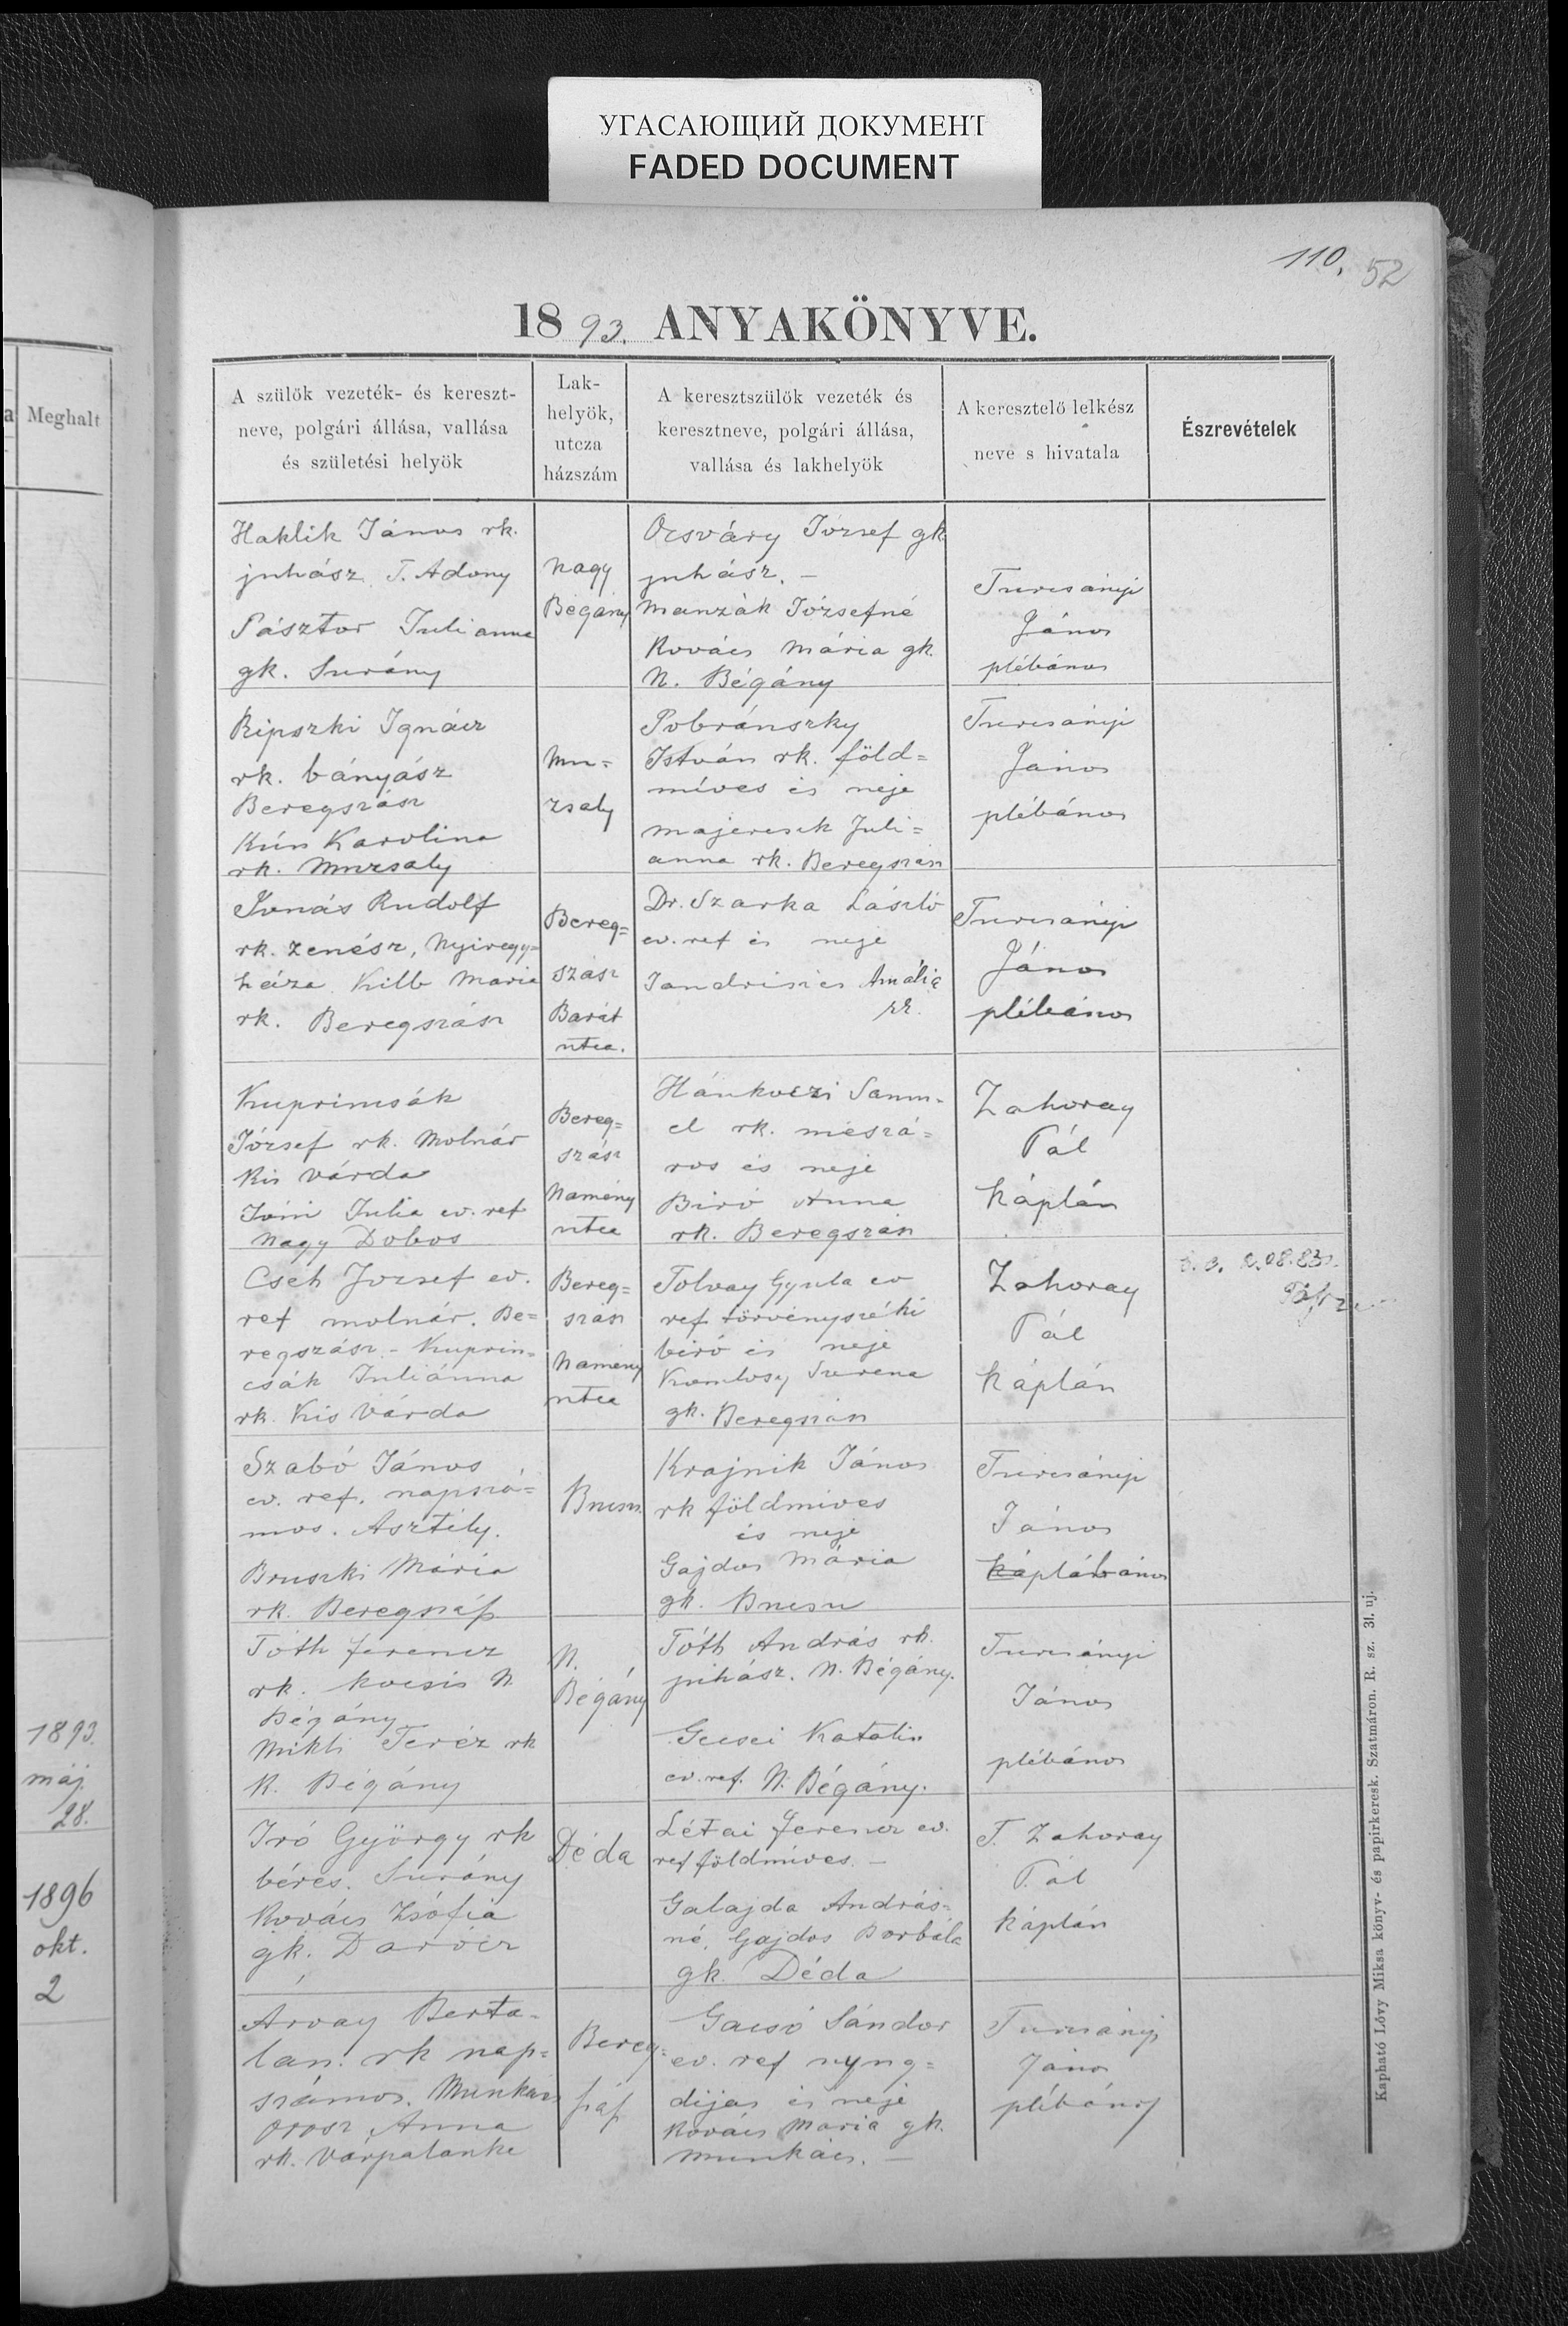 УГАСАЮЩИЙ ДОКУМЕНТ
FADED DOCUMENT
110.
52
1893. ANYAKÖNYVE.
a
Meghalt
A szülők vezeték- és kereszt-
neve, polgári állása, vallása
és születési helyök
Lak-
helyök,
utcza
házszám
A keresztszülök vezeték és
keresztneve, polgári állása,
vallása és lakhelyök
A keresztelő lelkész
neve s hivatala
Észrevételek
Haklik János rk.
juhász T. Adony
Pásztor Julianna
gk. Surány
Nagy
Bégány
Orsváry József gk.
juhász. –
Manzák Józsefné
Kovács Mária gk.
N. Bégány
Turcsányi
János
plébános
Ripszki Ignácz
rk. bányász
Beregszász
Kún Karolina
rk. Muzsaly
Mu=
zsaly
Pobránszky
István rk. föld=
míves és neje
Majercsik Juli=
anna rk. Beregszász
Turcsányi
János
plébános
Jónás Rudolf
rk. zenész, Nyiregy=
háza Kilb Maria
rk. Beregszász
Bereg=
szász
Barát
utca.
Dr. Szarka László
ev. ref és neje
Jandrisics Amália
Turcsányi
János
plébános
Kuprincsák
József rk. Molnár
Kis Várda
Julia ev. ref
Nagy Dobos
Bereg=
szász
Namény
utca
Hánkoczi Samu=
el rk. mészá=
ros és neje
Biró Anna
rk. Beregszász
Zahoray
Pál
káplán
Cseh József ev.
ref molnár. Be=
regszász – Kuprin=
csák Juliánna
rk. Kis Várda
Bereg=
szász
Namény
utca
Tolvay Gyula ev
ref törvényszéki
biró és neje
Komlosy Szerena
gk. Beregszász
Zahoray
Pál
káplán
Szabó János
ev. ref. napszá=
mos. Asztély.
Bruszki Mária
rk. Beregszáß
Bucsu
Krajnik János
rk földmives
és neje
Gajdos Mária
gk. Bucsu
Turcsányi
János
káplábános
Tóth Ferencz
rk. kocsis N.
Bégány
Mikli Teréz rk
K. Bégány
N.
Bégány
Tóth András rk.
juhász. N. Bégány.
Gecsei Katalin
ev. ref. N. Bégány.
Turcsányi
János
plébános
1893.
máj.
28.
Iró György rk
béres. Surány
Kovács Zsófia
gk. Darócz
Déda
Létai Ferencz ev.
ref földmives. –
Galajda András=
né, Gajdos Borbála
gk. Déda
T. Zahoray
Pál
káplán
1896
okt.
2
Árvay Berta=
lan. rk nap=
számos. Munkács
Orosz Anna
rk. Várpalánke
Bereg=
száß
Gacsó Sándor
ev. ref nyug=
dijas és neje
Kovács Maria gk.
Munkács. –
Turcsányi
János
plébános
Kapható Lővy Miksa könyv- és papirkeresk. Szatmáron. R. sz. 31. uj.